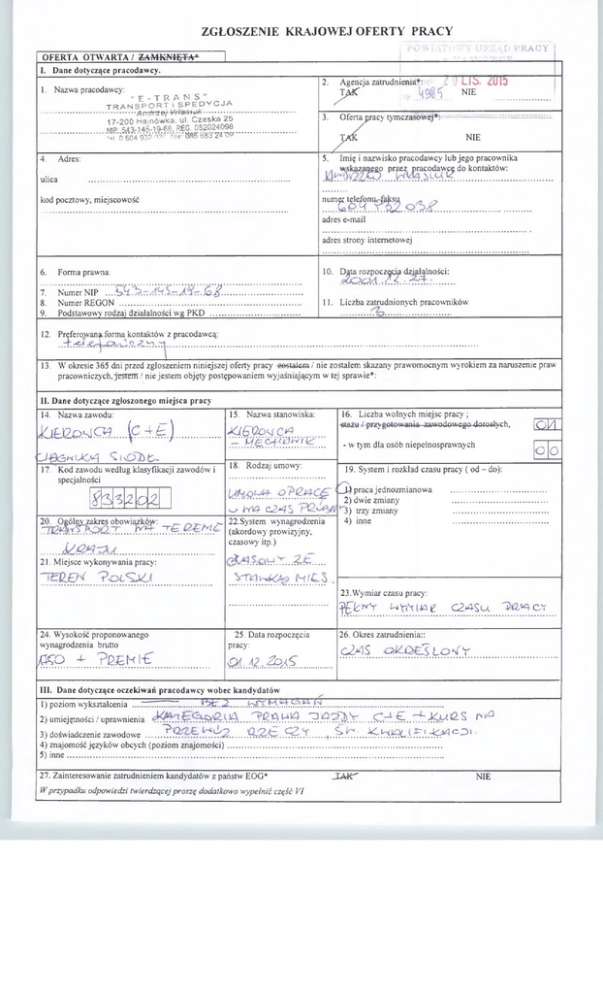 ZGŁOSZENIE KRAJOWEJ OFERTY PRACY
POWIATOWY URZĄD PRACY
OFERTA OTWARTA / ZAMKNIĘTA*
I. Dane dotyczące pracodawcy.
1. Nazwa pracodawcy:
"E-TRANS"
TRANSPORT i SPEDYCJA
Andrzej Własiuk
17-200 Hajnówka, ul. Czeska 25
NIP 543-145-19-68, REG. 052024098
2. Agencja zatrudnienia*:
LIS. 2015
TAK NIE
3. Oferta pracy tymczasowej*:
TAK NIE
4. Adres:
ulica
kod pocztowy, miejscowość
5. Imię i nazwisko pracodawcy lub jego pracownika
wskazanego przez pracodawcę do kontaktów:
numer telefonu, faksu
adres e-mail
adres strony internetowej
6. Forma prawna
7. Numer NIP 543-145-19-68
8. Numer REGON
9. Podstawowy rodzaj działalności wg PKD
10. Data rozpoczęcia działalności:
2001.12.27
11. Liczba zatrudnionych pracowników
12. Preferowana forma kontaktów z pracodawcą:
telefoniczny
13. W okresie 365 dni przed zgłoszeniem niniejszej oferty pracy zostałem / nie zostałem skazany prawomocnym wyrokiem za naruszenie praw
pracowniczych, jestem / nie jestem objęty postępowaniem wyjaśniającym w tej sprawie*:
II. Dane dotyczące zgłoszonego miejsca pracy
14. Nazwa zawodu:
KIEROWCA (C+E)
CIĄGNIKA SIODŁ.
15. Nazwa stanowiska:
KIEROWCA
- MECHANIK
16. Liczba wolnych miejsc pracy ;
stażu / przygotowania zawodowego dorosłych,
01
- w tym dla osób niepełnosprawnych
00
17. Kod zawodu według klasyfikacji zawodów i
specjalności
833202
18. Rodzaj umowy:
UMOWA O PRACĘ
NA CZAS
19. System i rozkład czasu pracy ( od – do):
1) praca jednozmianowa
2) dwie zmiany
3) trzy zmiany
4) inne
20. Ogólny zakres obowiązków:
TRANSPORT NA TERENIE
KRAJU
21. Miejsce wykonywania pracy:
TEREN POLSKI
22.System wynagrodzenia
(akordowy prowizyjny,
czasowy itp.)
CZASOWY ZE
STAWKĄ MIES.
23.Wymiar czasu pracy:
PEŁNY WYMIAR CZASU PRACY
24. Wysokość proponowanego
wynagrodzenia brutto
+ PREMIE
25. Data rozpoczęcia
pracy:
01.12.2015
26. Okres zatrudnienia::
CZAS OKREŚLONY
III. Dane dotyczące oczekiwań pracodawcy wobec kandydatów
1) poziom wykształcenia BEZ WYMAGAŃ
2) umiejętności / uprawnienia KATEGORIA PRAWA JAZDY C+E + KURS NA
3) doświadczenie zawodowe PRZEWÓZ RZECZY, ŚW. KWALIFIKACJI.
4) znajomość języków obcych (poziom znajomości)
5) inne
27. Zainteresowanie zatrudnieniem kandydatów z państw EOG* TAK NIE
W przypadku odpowiedzi twierdzącej proszę dodatkowo wypełnić część VI